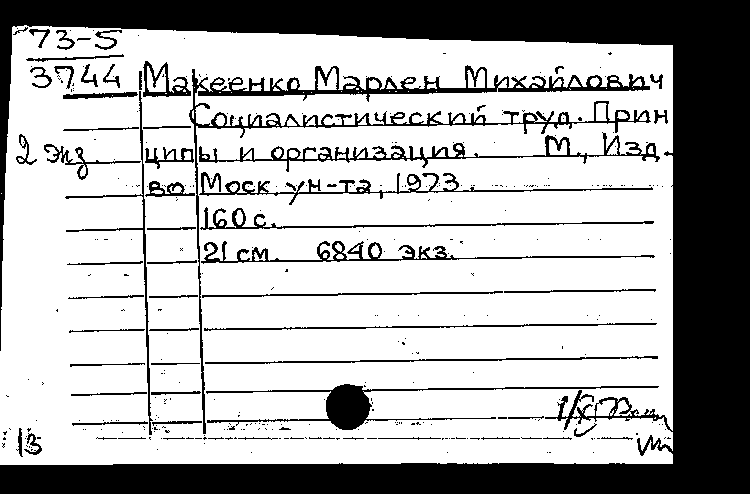 73-5
3744 Макеенко, Марлен Михайлович
Социалистический труд. Прин
2 экз. ципы и организация. М., Изд.
во Моск. ун-та, 1973.
160 с.
21 см. 6840 экз.
13